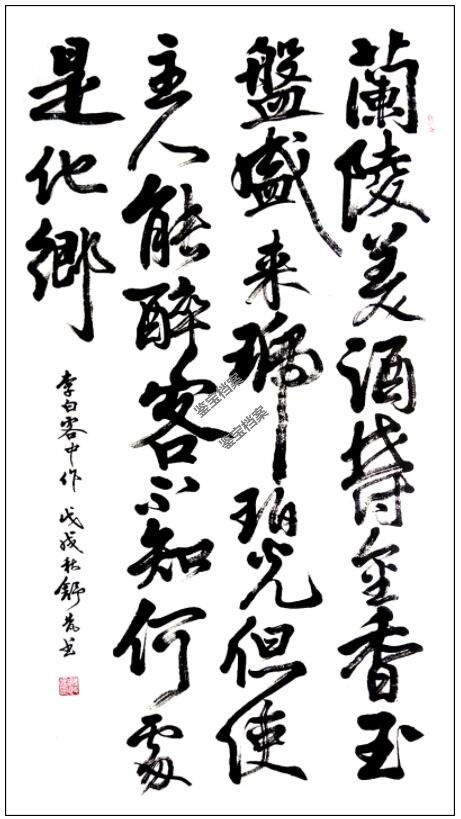 蘭陵美酒鬱金香玉
盤盛来琥珀光但使
主人能醉客不知何處
是他鄉
李白客中作 戊戌秋舒书
鉴宝档案
鉴宝档案